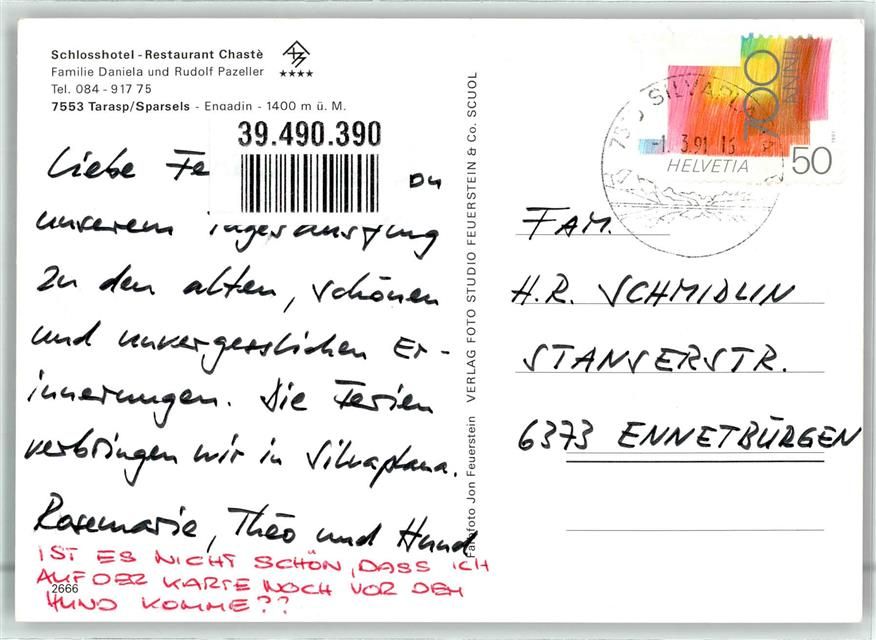 Schlosshotel - Restaurant Chastè
Familie Daniela und Rudolf Pazeller
Tel. 084 - 917 75
7553 Tarasp/Sparsels - Engadin - 1400 m ü. M.
39.490.390
Liebe
unserem Tagesausflug
zu den alten, schönen
und unvergesslichen Er-
innerungen. Die Ferien
verbringen wir in Silvaplana.
Rosemarie, Théo und Hund
IST ES NICHT SCHÖN, DASS ICH
AUF DER KARTE NOCH VOR DEM
HUND KOMME??
2666
Farbfoto Jon Feuerstein VERLAG FOTO STUDIO FEUERSTEIN & Co. SCUOL
SILVAPLANA
-1.3.91
700
ANNI
HELVETIA
50
1991
FAM.
H.R. SCHMIDLIN
STANSERSTR.
6373 ENNETBÜRGEN